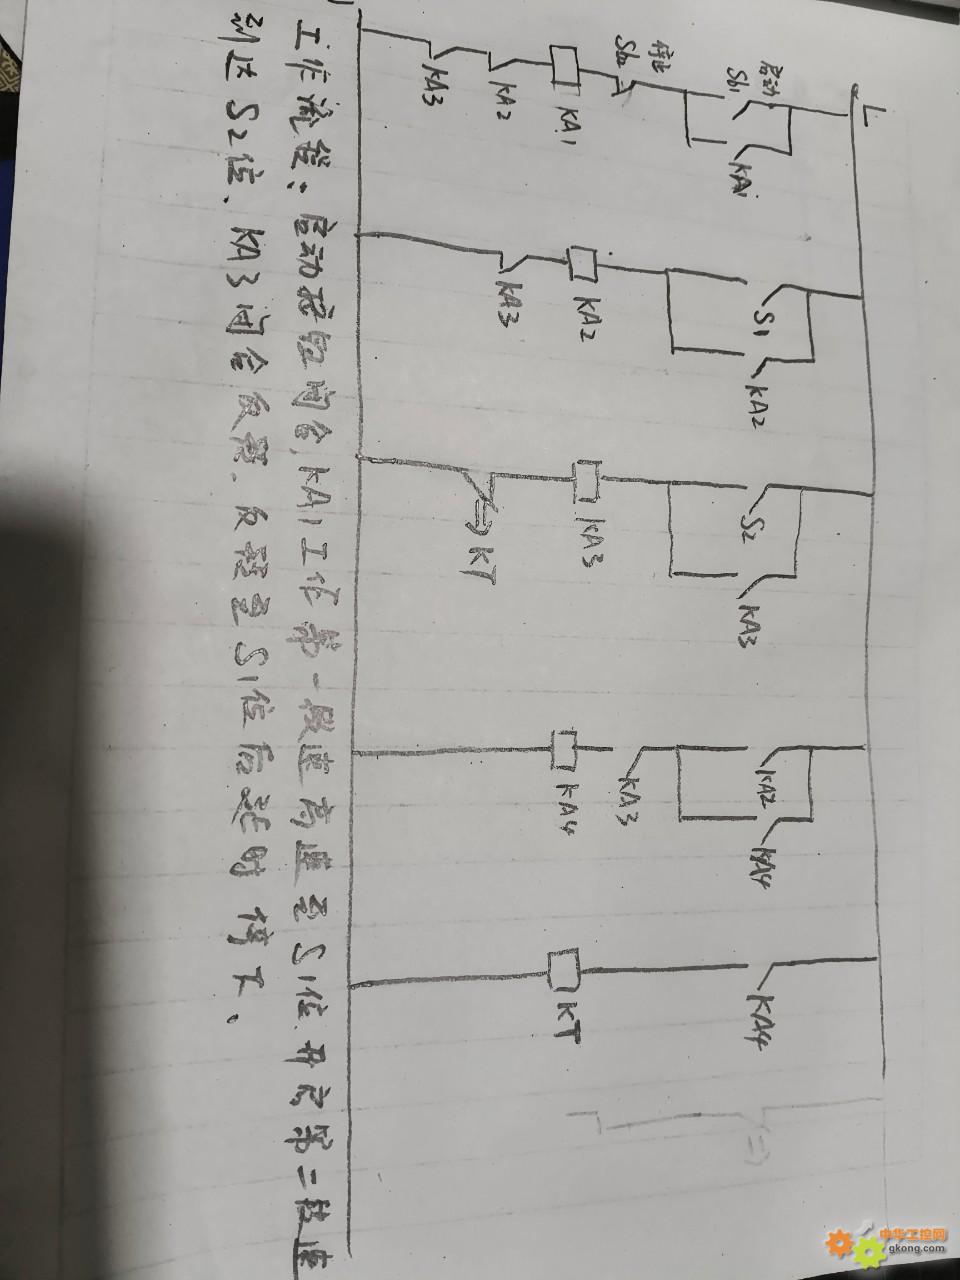 L
启动
Sb1
KA1
停止
Sb2
KA1
KA2
KA3
S1
KA2
KA2
KA3
S2
KA3
KA3
KT
KA2
KA4
KA3
KA4
KA4
KT
工作流程：启动按钮闭合，KA1工作第一段速高速至S1位，开启第二段速
到达S2位，KA3闭合反转，反转至S1位后延时停下。
中华工控网
gkong.com